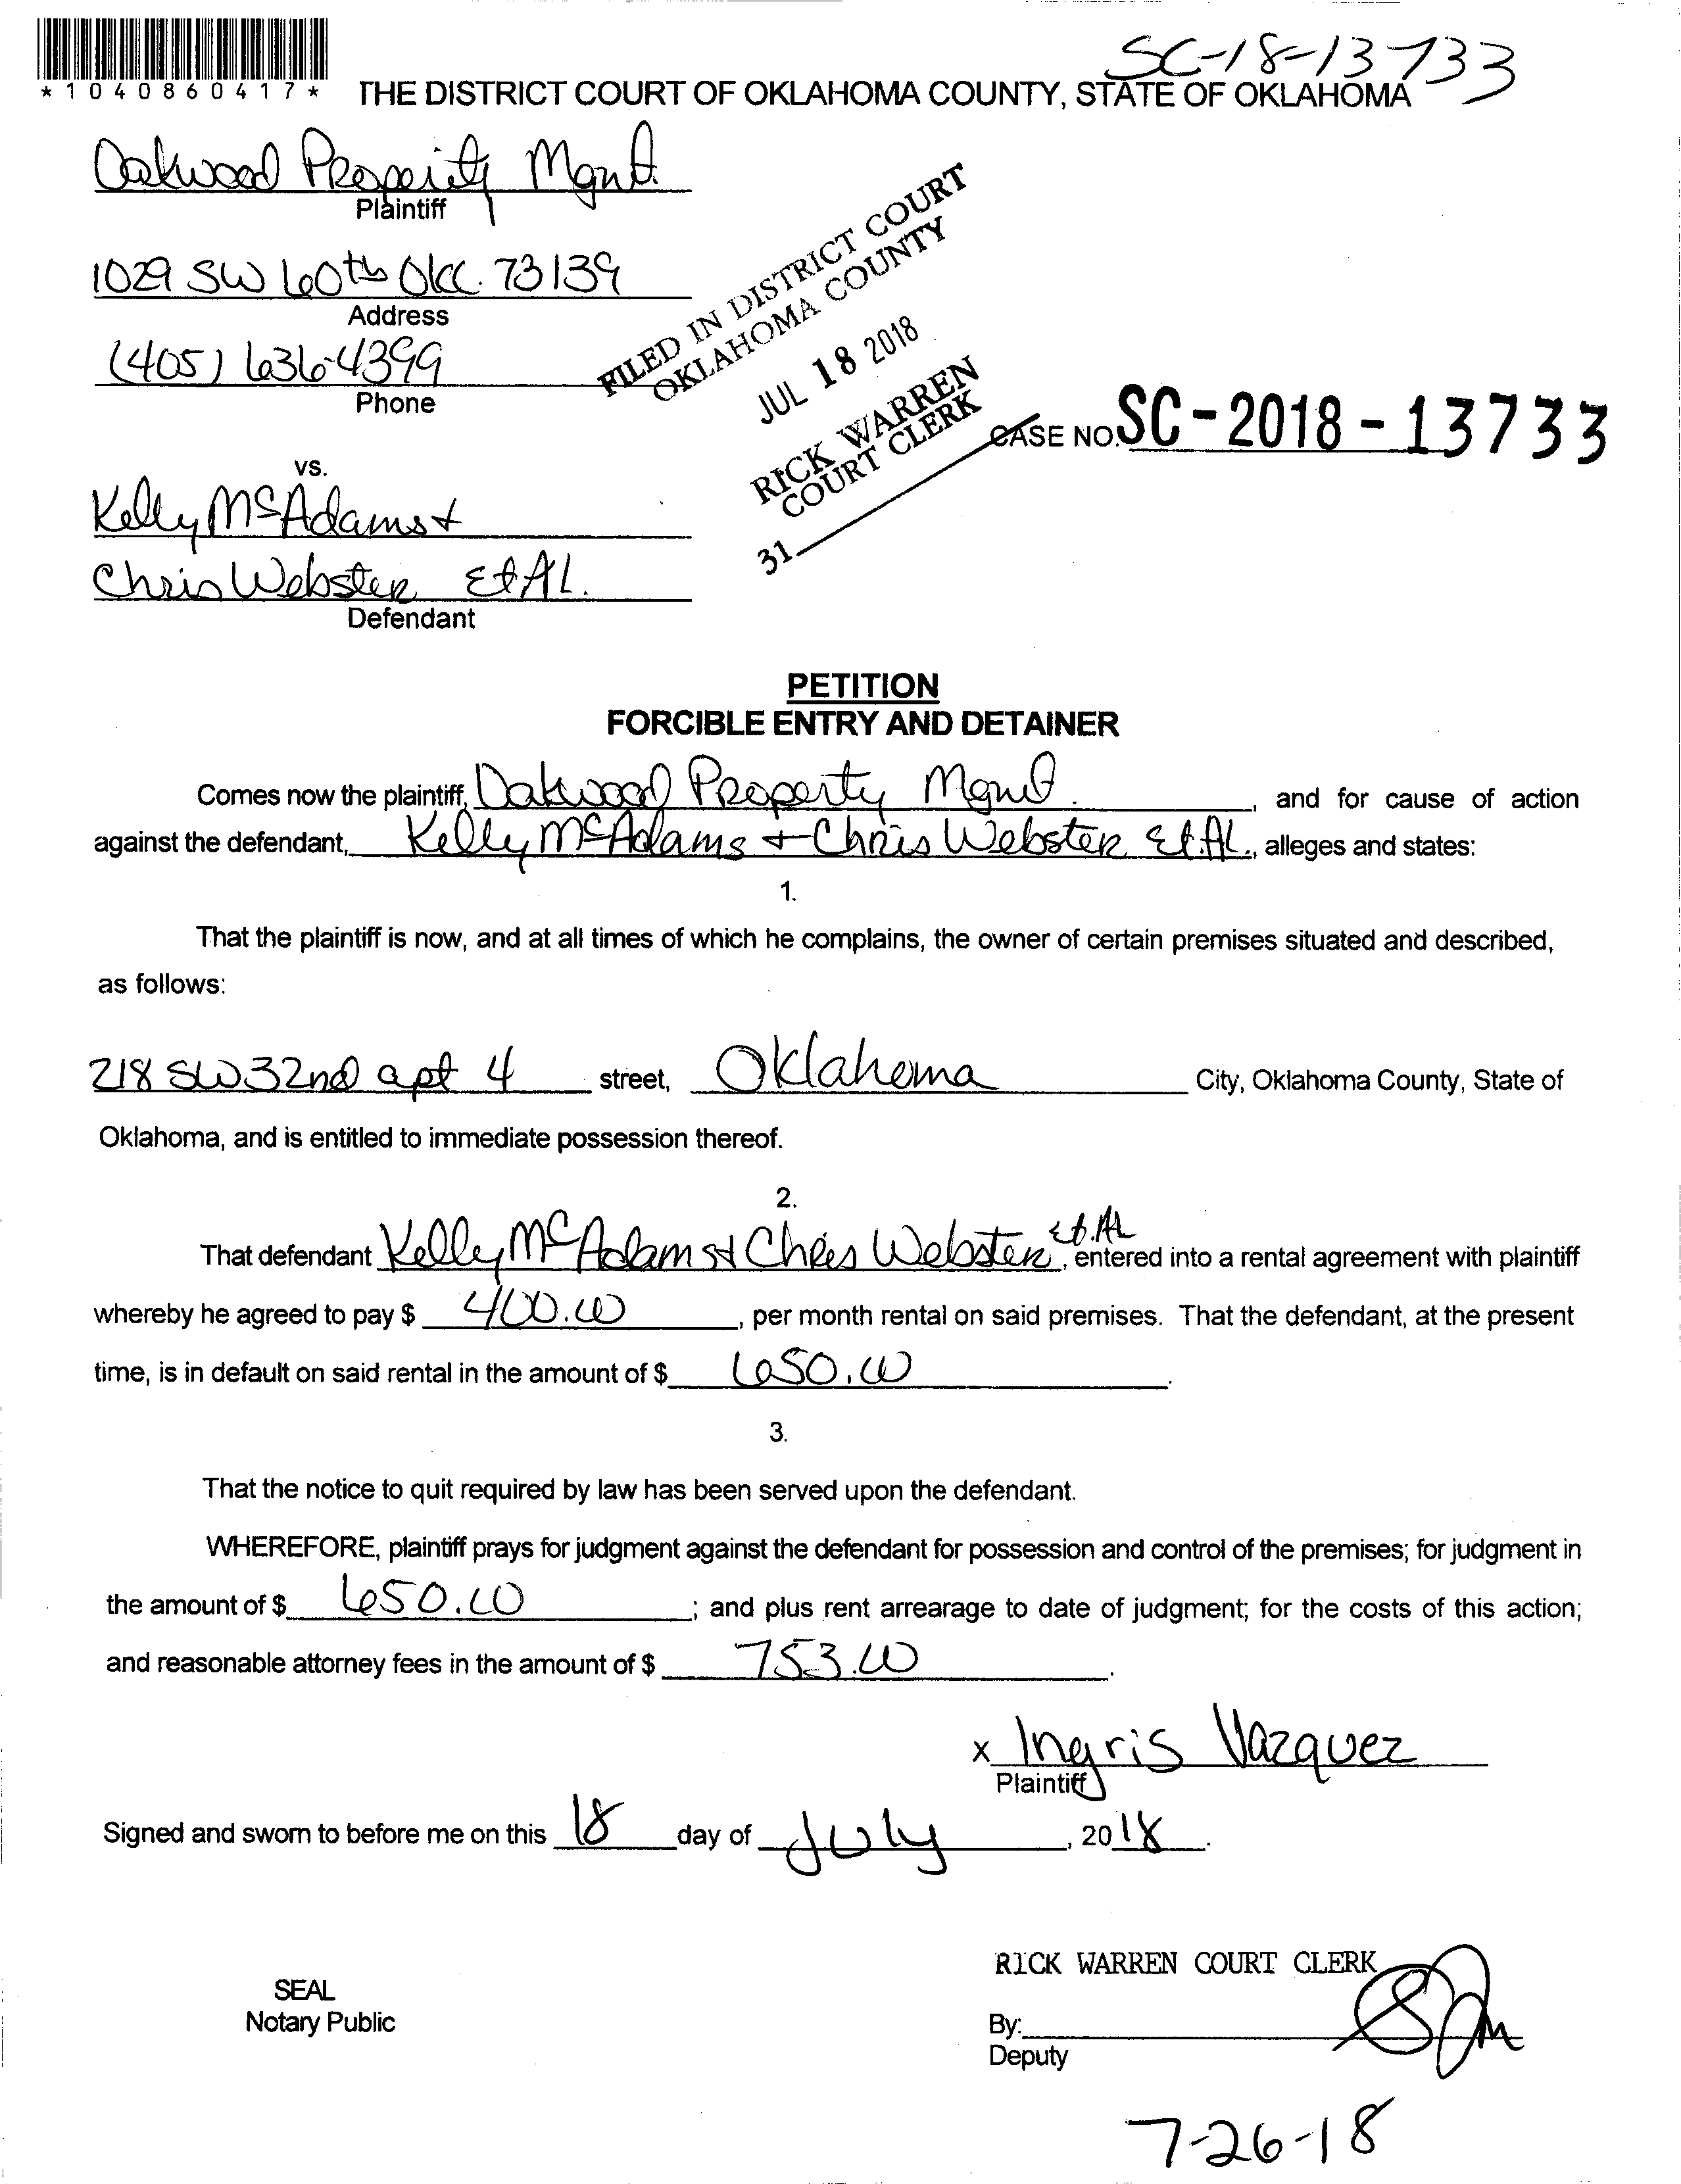 SC-18-13733
*1040860417*
THE DISTRICT COURT OF OKLAHOMA COUNTY, STATE OF OKLAHOMA
Oakwood Property Mgmt.
Plaintiff
1029 SW 60th Okc. 73139
Address
(405) 636-4399
Phone
FILED IN DISTRICT COURT
OKLAHOMA COUNTY
JUL 18 2018
RICK WARREN
COURT CLERK
31
CASE NO. SC-2018-13733
vs.
Kelly McAdams +
Chris Webster Et AL.
Defendant
PETITION
FORCIBLE ENTRY AND DETAINER
Comes now the plaintiff, Oakwood Property Mgmt., and for cause of action
against the defendant, Kelly McAdams + Chris Webster Et.AL., alleges and states:
1.
That the plaintiff is now, and at all times of which he complains, the owner of certain premises situated and described,
as follows:
218 SW 32nd apt 4 street, Oklahoma City, Oklahoma County, State of
Oklahoma, and is entitled to immediate possession thereof.
2.
That defendant Kelly McAdams + Chris Webster Et.AL, entered into a rental agreement with plaintiff
whereby he agreed to pay $ 400.00, per month rental on said premises. That the defendant, at the present
time, is in default on said rental in the amount of $ 650.00.
3.
That the notice to quit required by law has been served upon the defendant.
WHEREFORE, plaintiff prays for judgment against the defendant for possession and control of the premises; for judgment in
the amount of $ 650.00; and plus rent arrearage to date of judgment; for the costs of this action;
and reasonable attorney fees in the amount of $ 753.00.
x Ingris Vazquez
Plaintiff
Signed and sworn to before me on this 18 day of July, 2018.
RICK WARREN COURT CLERK
SEAL
Notary Public
By:
Deputy
7-26-18